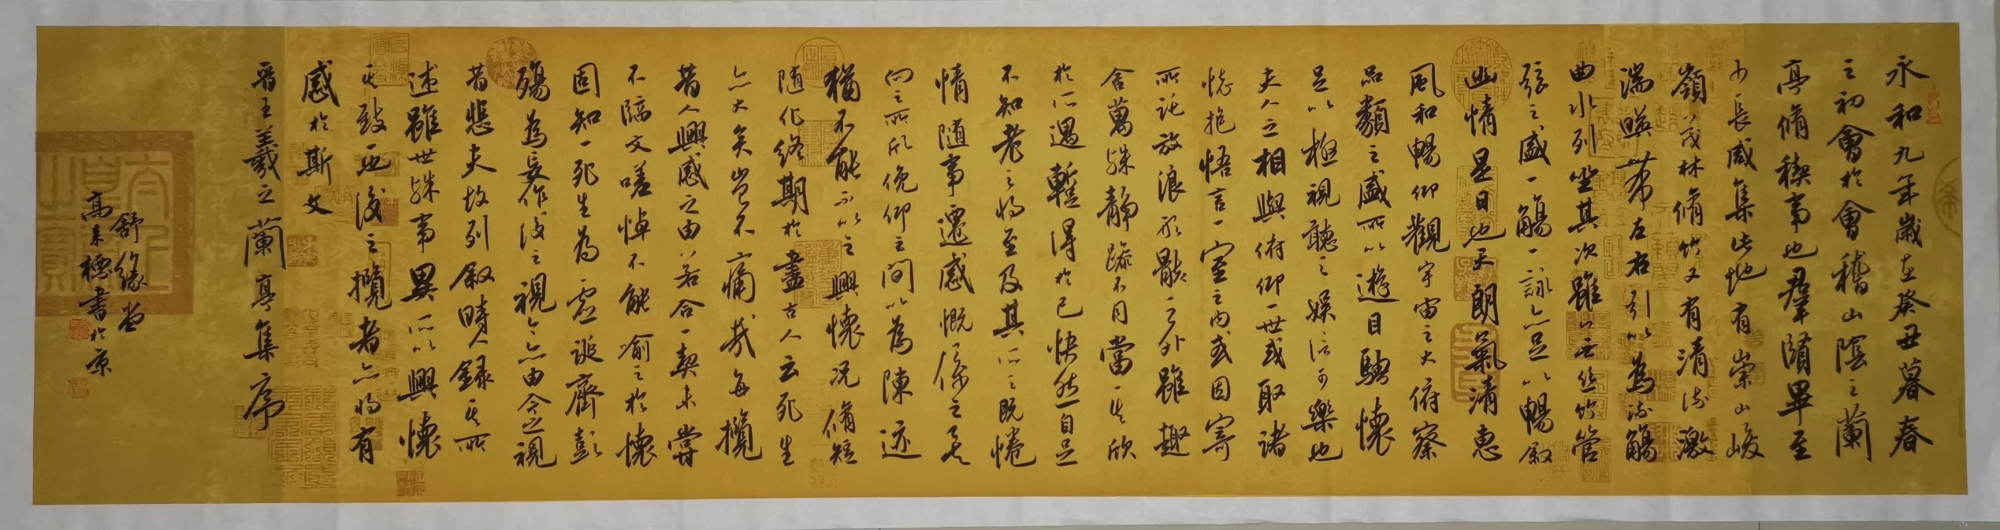 永和九年歲在癸丑暮春
之初會於會稽山陰之蘭
亭脩稧事也羣賢畢至
少長咸集此地有崇山峻
嶺茂林脩竹又有清流激
湍暎帶左右引以為流觴
曲水列坐其次雖無絲竹管
弦之盛一觴一詠亦足以暢敘
幽情是日也天朗氣清惠
風和暢仰觀宇宙之大俯察
品類之盛所以遊目騁懷
足以極視聽之娛信可樂也
夫人之相與俯仰一世或取諸
懷抱悟言一室之內或因寄
所託放浪形骸之外雖趣
舍萬殊靜躁不同當其欣
於所遇暫得於己快然自足
不知老之將至及其所之既惓
情隨事遷感慨係之矣
向之所欣俛仰之間以為陳迹
猶不能不以之興懷況脩短
隨化終期於盡古人云死生
亦大矣豈不痛哉每攬
昔人興感之由若合一契未嘗
不臨文嗟悼不能喻之於懷
固知一死生為虛誕齊彭
殤為妄作後之視今亦由今之視
昔悲夫故列敘時人錄其所
述雖世殊事異所以興懷
其致一也後之攬者亦將有
感於斯文
晉王羲之蘭亭集序
舒緣堂
書於京